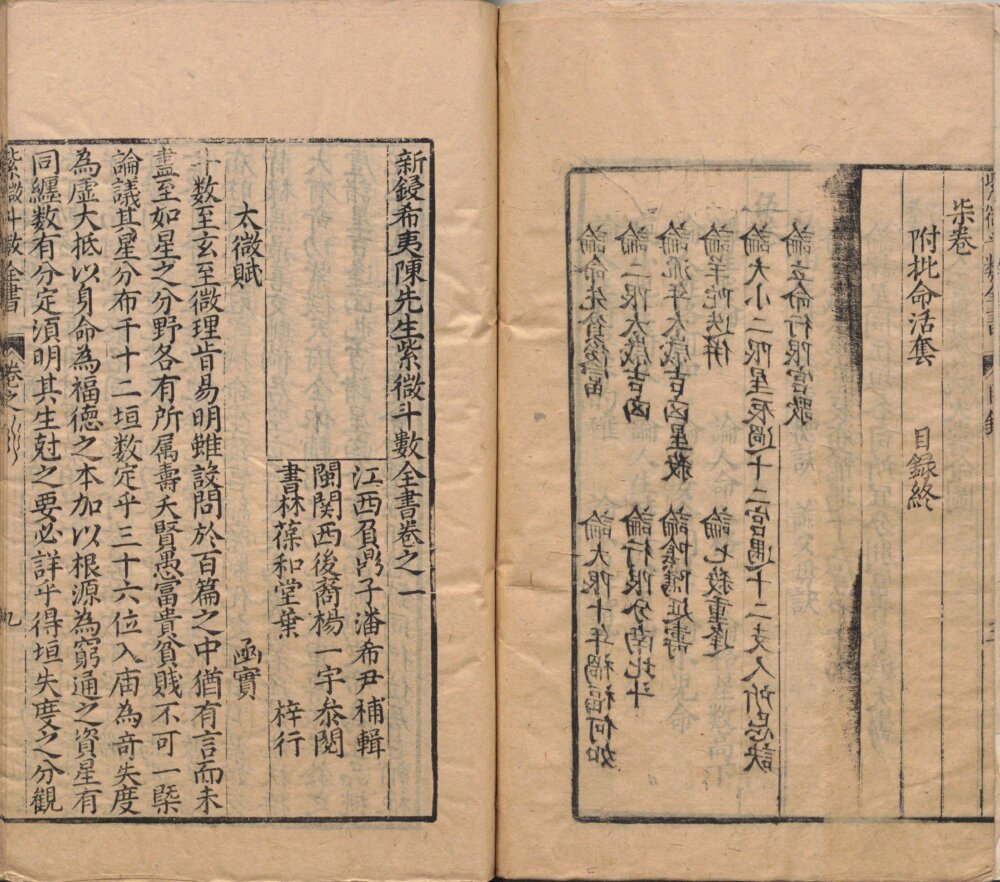 柒卷
附批命活套 目録終
論立命行限宮歌
論大小二限星辰過十二宮遇十二支人所忌訣
論羊陀迭併 論七殺重逢
論流年太歲吉凶星殺 論陰隲延壽
論二限太歲吉凶 論行限分南北斗
論命先貧後富 論大限十年禍福何如
新鋟希夷陳先生紫微斗數全書卷之一
江西負鼎子潘希尹補輯
閩関西後裔楊一宇叅閱
書林葆和堂葉 梓行
太微賦 函實
斗数至玄至微理旨易明雖設問於百篇之中猶有言而未
盡至如星之分野各有所属壽夭賢愚富貴貧賤不可一槩
論議其星分布于十二垣数定乎三十六位入庙為竒失度
為虛大抵以身命為福德之本加以根源為窮通之資星有
同纒数有分定湏明其生尅之要必詳乎得垣失度之分觀
紫微斗数全書 卷之 九